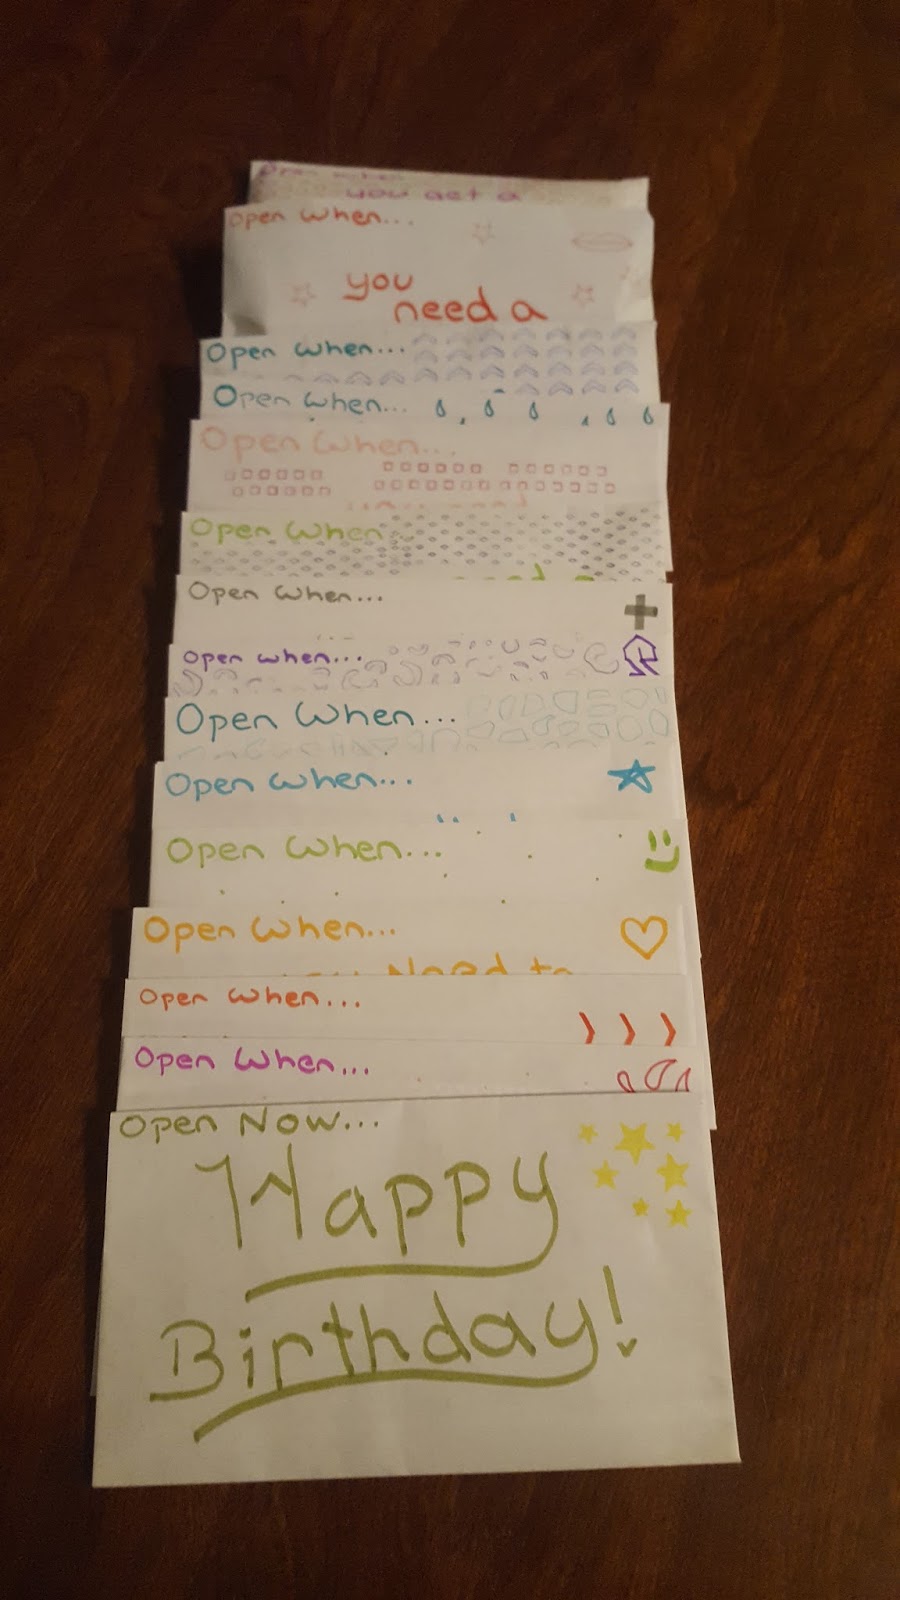 Open When
you get a
Open When...
you
need a
Open When...
Open When...
Open When...
Open When...
need a
Open When...
Open When...
Open When...
Open When...
Open When...
Open When...
you Need to
Open When...
Open When...
Open Now...
Happy
Birthday!